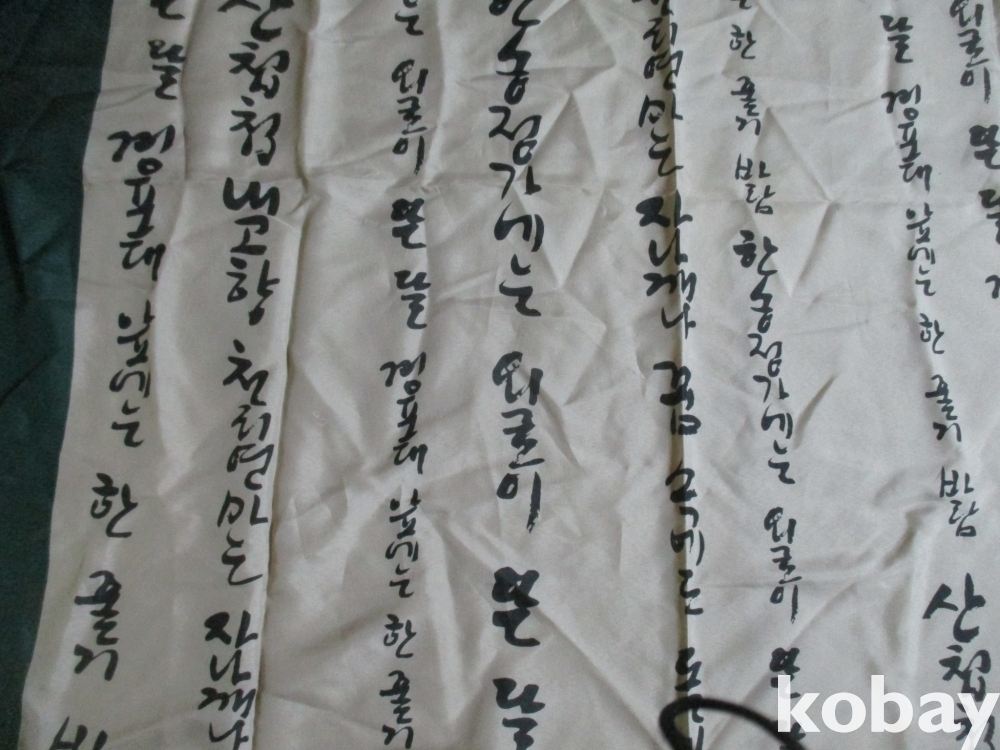 달 경포대 앞에는 한 줄기
산 첩첩 내고향 천리연마는 자나깨나
는 외로이 뜬 달 경포대 앞에는 한 줄기
한송정가에는 외로이 뜬 달
천리연마는 자나깨나 꿈 속에도
한 줄기 바람 한송정가에는 외로이 뜬
달 경포대 앞에는 한 줄기 바람 산 첩첩
외로이 뜬 달
kobay